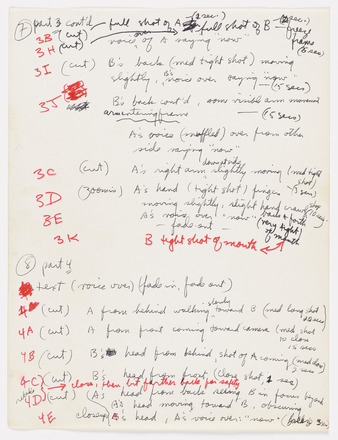 7) part 3 cont'd — full shot of A (2 sec.) full shot of B — (2 sec.) freeze frame (5 sec)
3B (cut) over
3H (cut) voice of A saying "now"
3I (cut) B's back (med tight shot) moving
slightly, B's voice over saying "now"
— (15 secs)
3J B's back cont'd, some visible arm movement
arm entering frame — (15 secs)
A's voice (muffled) over from other
side saying "now"
3C (cut) A's right arm slightly moving (med tight shot)
3D (zoom in) A's hand (tight shot) fingers (5 sec)
moving slightly, slight hand
3E A's voice over "now" back + forth
— fade out — (very tight) of mouth
3K B tight shot of mouth
8) part 4
text (voice over) (fade in, fade out)
4 (cut) A from behind walking slowly toward B (med long shot)
4A (cut) A from front coming toward camera (med shot to close
15 secs
4B (cut) B's head from behind shot of A coming (med close)
5 secs
4C) (cut) B's head from front (close shot, 1 sec)
close, then but farther back for safety
4D) (cut) A's head from back seeing B in front
A's head moving toward B, obscuring
4E closeup B's head, A's voice over "now"